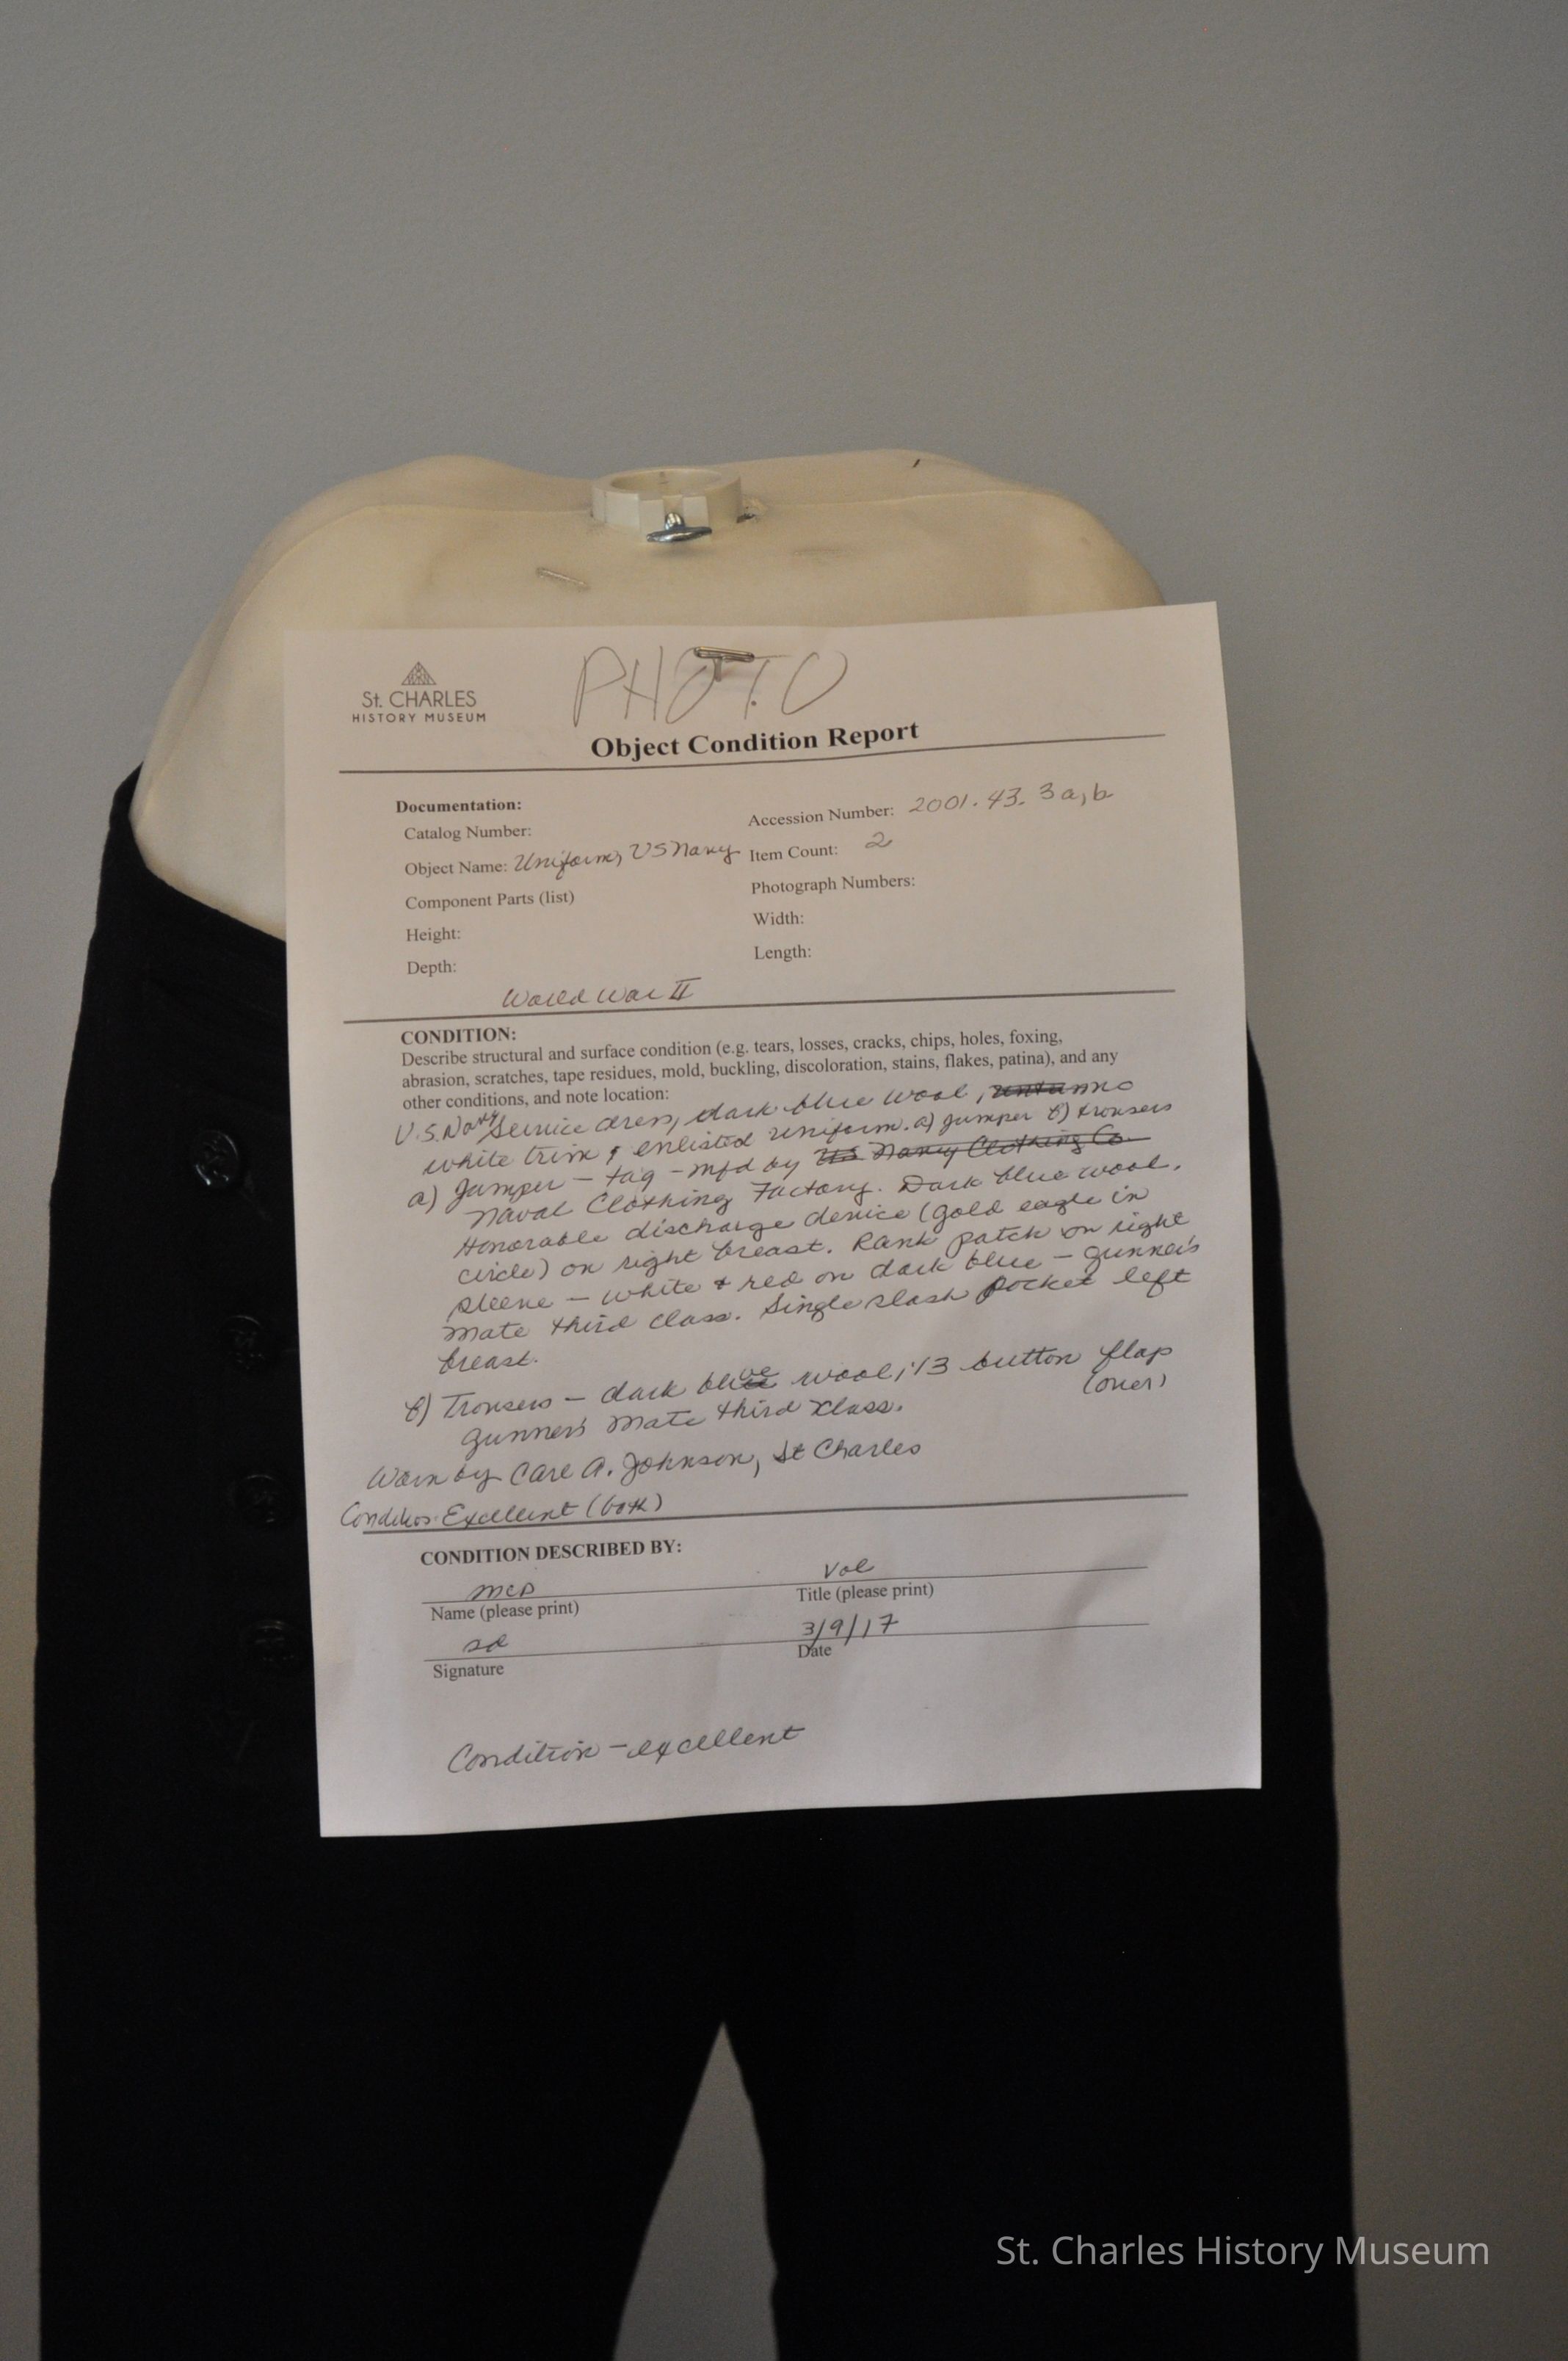 PHOTO
St. CHARLES
HISTORY MUSEUM
Object Condition Report
Documentation:
Catalog Number:
Accession Number: 2001.43.3a,b
Object Name: Uniform, US Navy
Item Count: 2
Component Parts (list)
Photograph Numbers:
Height:
Width:
Depth:
Length:
World War II
CONDITION:
Describe structural and surface condition (e.g. tears, losses, cracks, chips, holes, foxing,
abrasion, scratches, tape residues, mold, buckling, discoloration, stains, flakes, patina), and any
other conditions, and note location:
U.S. Navy Service dress, dark blue wool, no
white trim, enlisted uniform. a) jumper b) trousers
a) Jumper – tag – mfd by US Navy Clothing Co.
Naval Clothing Factory. Dark blue wool.
Honorable discharge device (gold eagle in
circle) on right breast. Rank patch on right
sleeve – white & red on dark blue – gunner's
mate third class. Single slash pocket left
breast.
b) Trousers – dark blue wool, 13 button flap
(over)
gunner's mate third class.
Worn by Carl A. Johnson, St Charles
Condition: Excellent (both)
CONDITION DESCRIBED BY:
MCD
Vol
Name (please print)
Title (please print)
3/9/17
Signature
Date
Condition – excellent
St. Charles History Museum